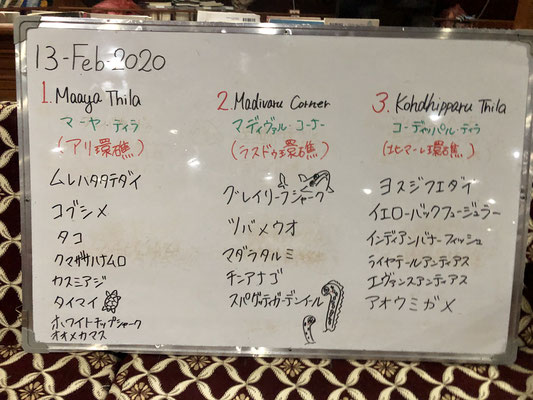 13-Feb-2020
1. Maaya Thila
マーヤ・ティラ
(アリ環礁)
ムレハタタテダイ
コブシメ
タコ
クマザサハナムロ
カスミアジ
タイマイ
ホワイトチップシャーク
オオメカマス
2. Madivaru Corner
マディヴァル・コーナー
(ラスドゥ環礁)
グレイリーフシャーク
ツバメウオ
マダラタルミ
チンアナゴ
スパゲッティガーデンイール
3. Kohdhipparu Thila
コーディッパル・ティラ
(北マーレ環礁)
ヨスジフエダイ
イエローバックフュージュラー
インディアンバナーフィッシュ
ライヤテールアンティアス
エヴァンスアンティアス
アオウミガメ